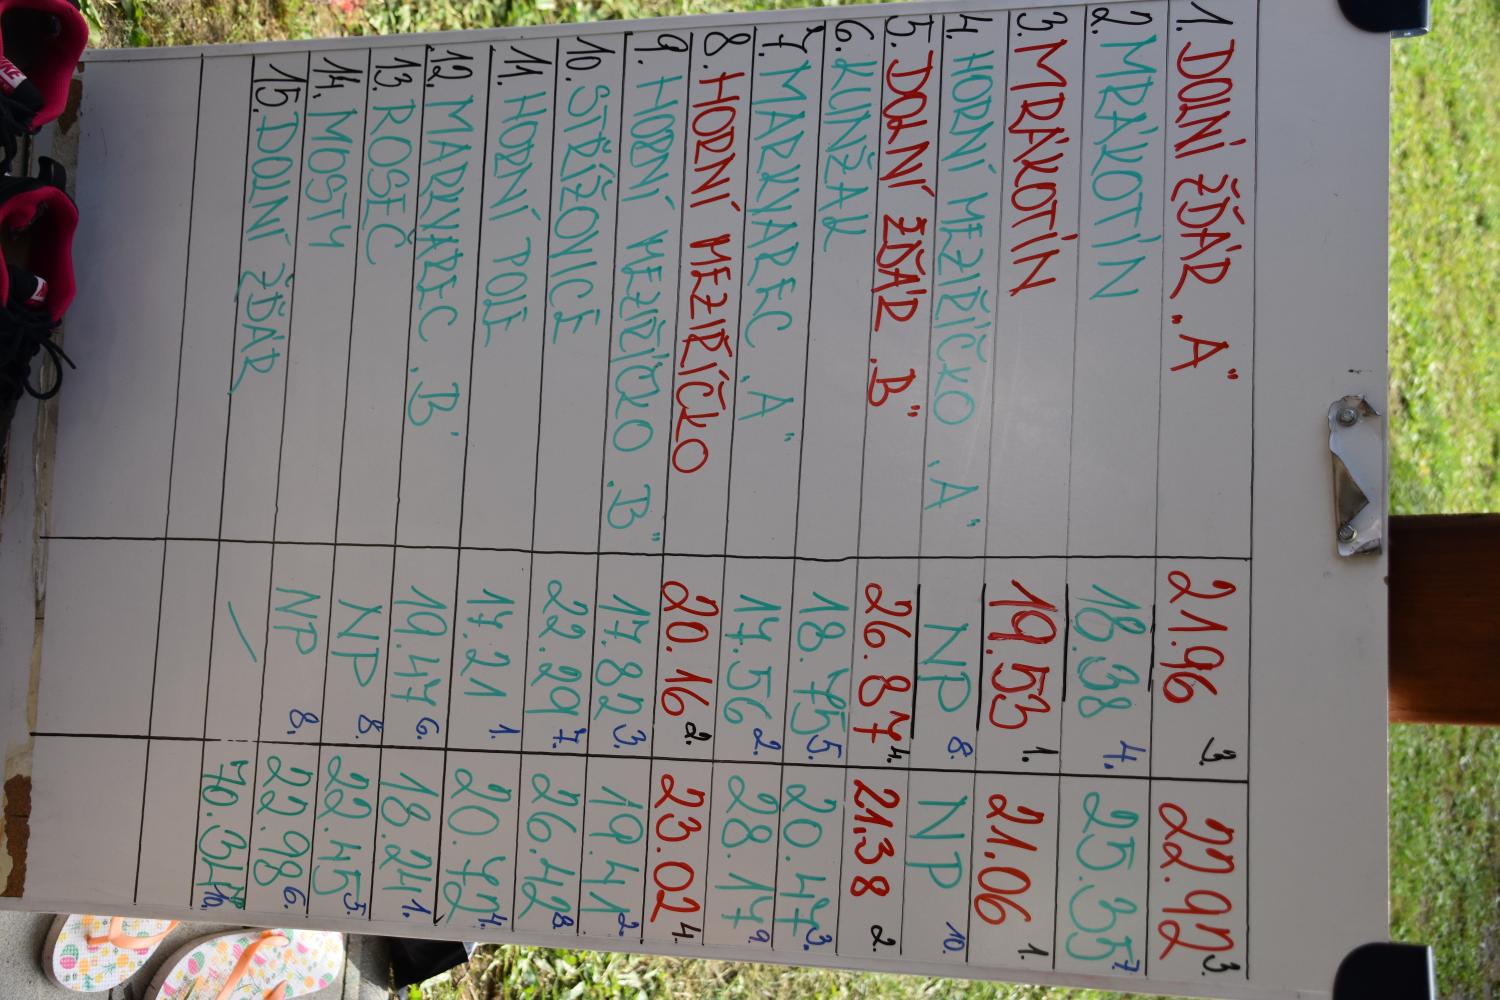 1. DOLNÍ ŽĎÁR „A" 21.96 3. 22.92 3.
2. MRÁKOTÍN 18.38 4. 25.35 7.
3. MRÁKOTÍN 19.53 1. 21.06 1.
4. HORNÍ MEZIŘÍČKO „A" NP 8. NP 10.
5. DOLNÍ ŽĎÁR „B" 26.87 4. 21.38 2.
6. KUNŽAK 18.75 5. 20.47 3.
7. MARKVAREC „A" 17.56 2. 28.17 9.
8. HORNÍ MEZIŘÍČKO 20.16 2. 23.02 4.
9. HORNÍ MEZIŘÍČKO „B" 17.82 3. 19.41 2.
10. STŘÍŽOVICE 22.29 7. 26.42 8.
11. HORNÍ POLE 17.21 1. 20.72 4.
12. MARKVAREC „B" 19.47 6. 18.24 1.
13. ROSEČ NP 8. 22.45 5.
14. MOSTY NP 8. 22.98 6.
15. DOLNÍ ŽĎÁR / 70.34 10.